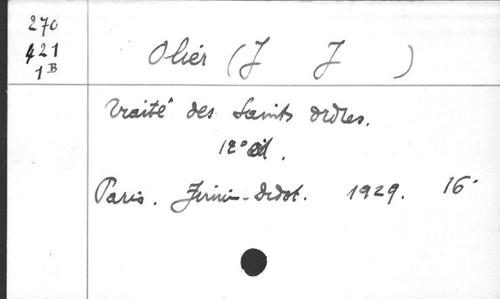 270
421
1B
Olier (J J )
Traité des Saints Ordres.
12e éd.
Paris. Firmin-Didot. 1929. 16°